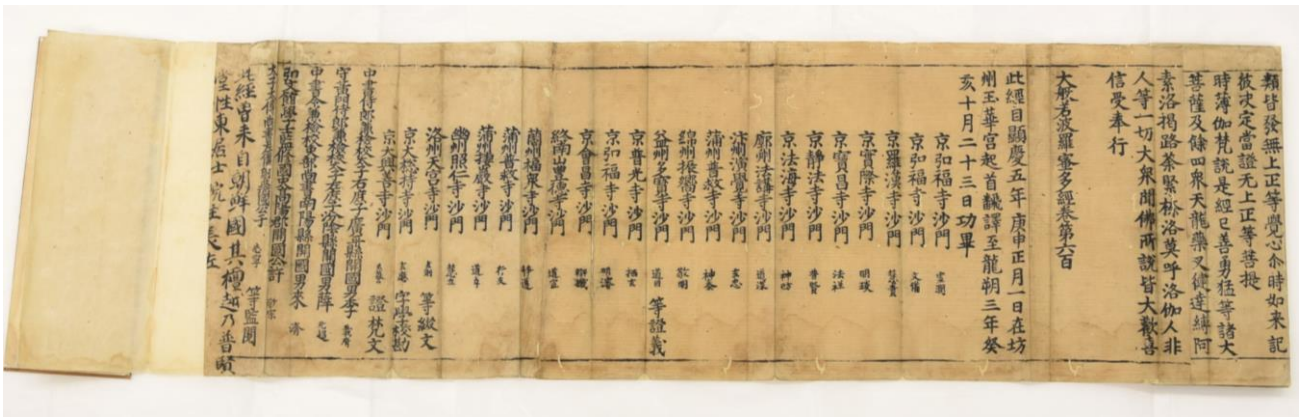 類皆發無上正等覺心尒時如来記
彼决定當證无上正等菩提
時薄伽梵説是經已善勇猛等諸大
菩薩及餘四衆天龍藥叉健達縛阿
素洛揭路荼緊捺洛莫呼洛伽人非
人等一切大衆聞佛所説皆大歡喜
信受奉行
大般若波羅蜜多經卷第六百
此經自顯慶五年庚申正月一日在坊
州玉華宮起首翻譯至龍朔三年癸
亥十月二十三日功畢
京弘福寺沙門
京弘福寺沙門 文備
京羅漢寺沙門 慧貴
京實際寺沙門 明琰
京寶昌寺沙門 法祥
京靜法寺沙門 普賢
京法海寺沙門 神昉
廓州法講寺沙門 道深
汴州演覺寺沙門 玄忠
蒲州普救寺沙門 神泰
綿州振嚮寺沙門 敬明
益州多寶寺沙門 道因 等證義
京普光寺沙門 栖玄
京弘福寺沙門 明濬
京會昌寺沙門 辯機
終南山豐德寺沙門 道宣
蘭州福聚寺沙門 靜邁
蒲州普救寺沙門 行友
蒲州棲巖寺沙門 道卓
豳州照仁寺沙門 慧立
洛州天宮寺沙門 玄則 等綴文
京大捴持寺沙門 玄應 字學挍勘
京大興善寺沙門 玄暮 證梵文
中書侍郎兼檢挍太子右庶子廣平縣開國男李 義府
守黄門侍郎兼檢挍太子左庶子汾陰縣開國男薛 元超
中書令兼檢挍吏部尚書南陽縣開國男来 濟
等監閲
此經曽来自朝鮮國其檀越乃普賢